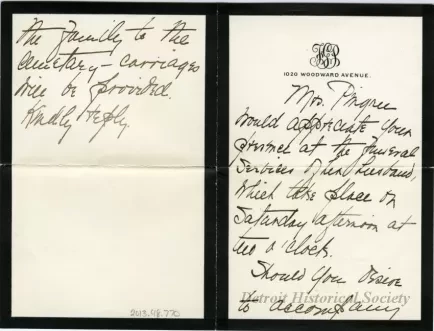 1020 WOODWARD AVENUE.
Mrs. Pingree
would appreciate your
presence at the funeral
services of her husband,
which take place on
Saturday afternoon at
two o'clock.
Should you desire
to accompany
the family to the
cemetery - carriages
will be provided.
Kindly reply.
2013.48.770
Detroit Historical Society